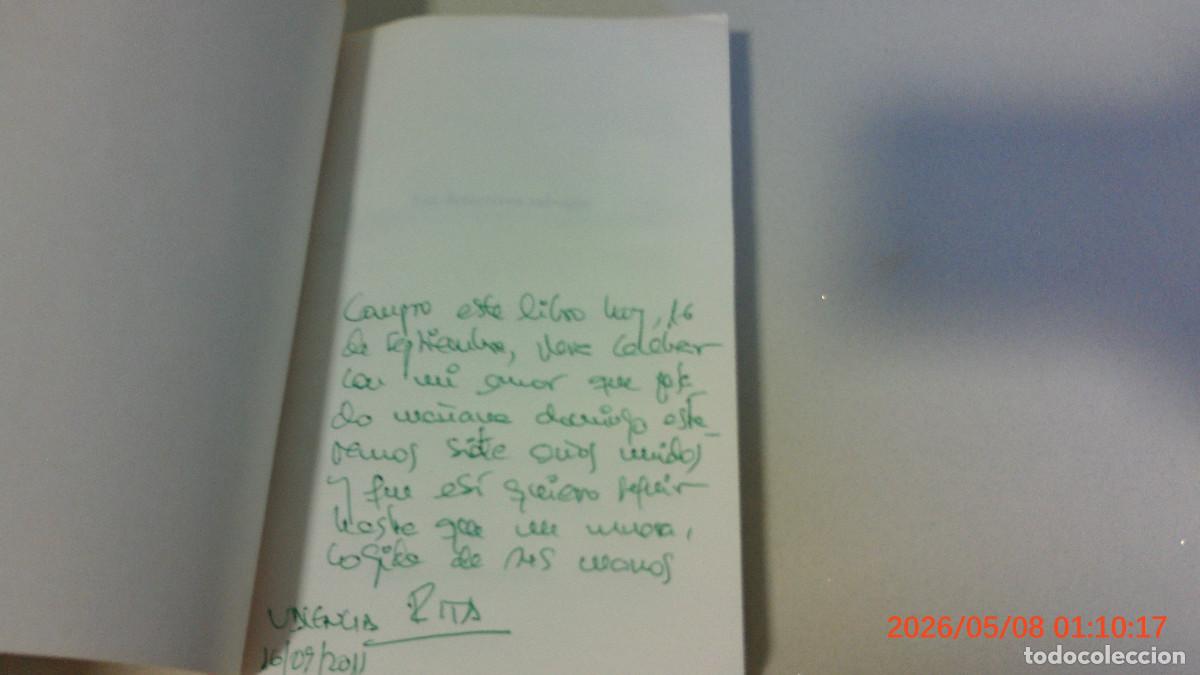 Compro este libro hoy, 16
de septiembre, para celebrar
con mi amor que pasa-
do mañana domingo esta-
remos siete años unidos
y que así quiero seguir
hasta que me muera,
cogida de sus manos
RITA
VALENCIA
16/09/2011
2026/05/08 01:10:17
todocoleccion